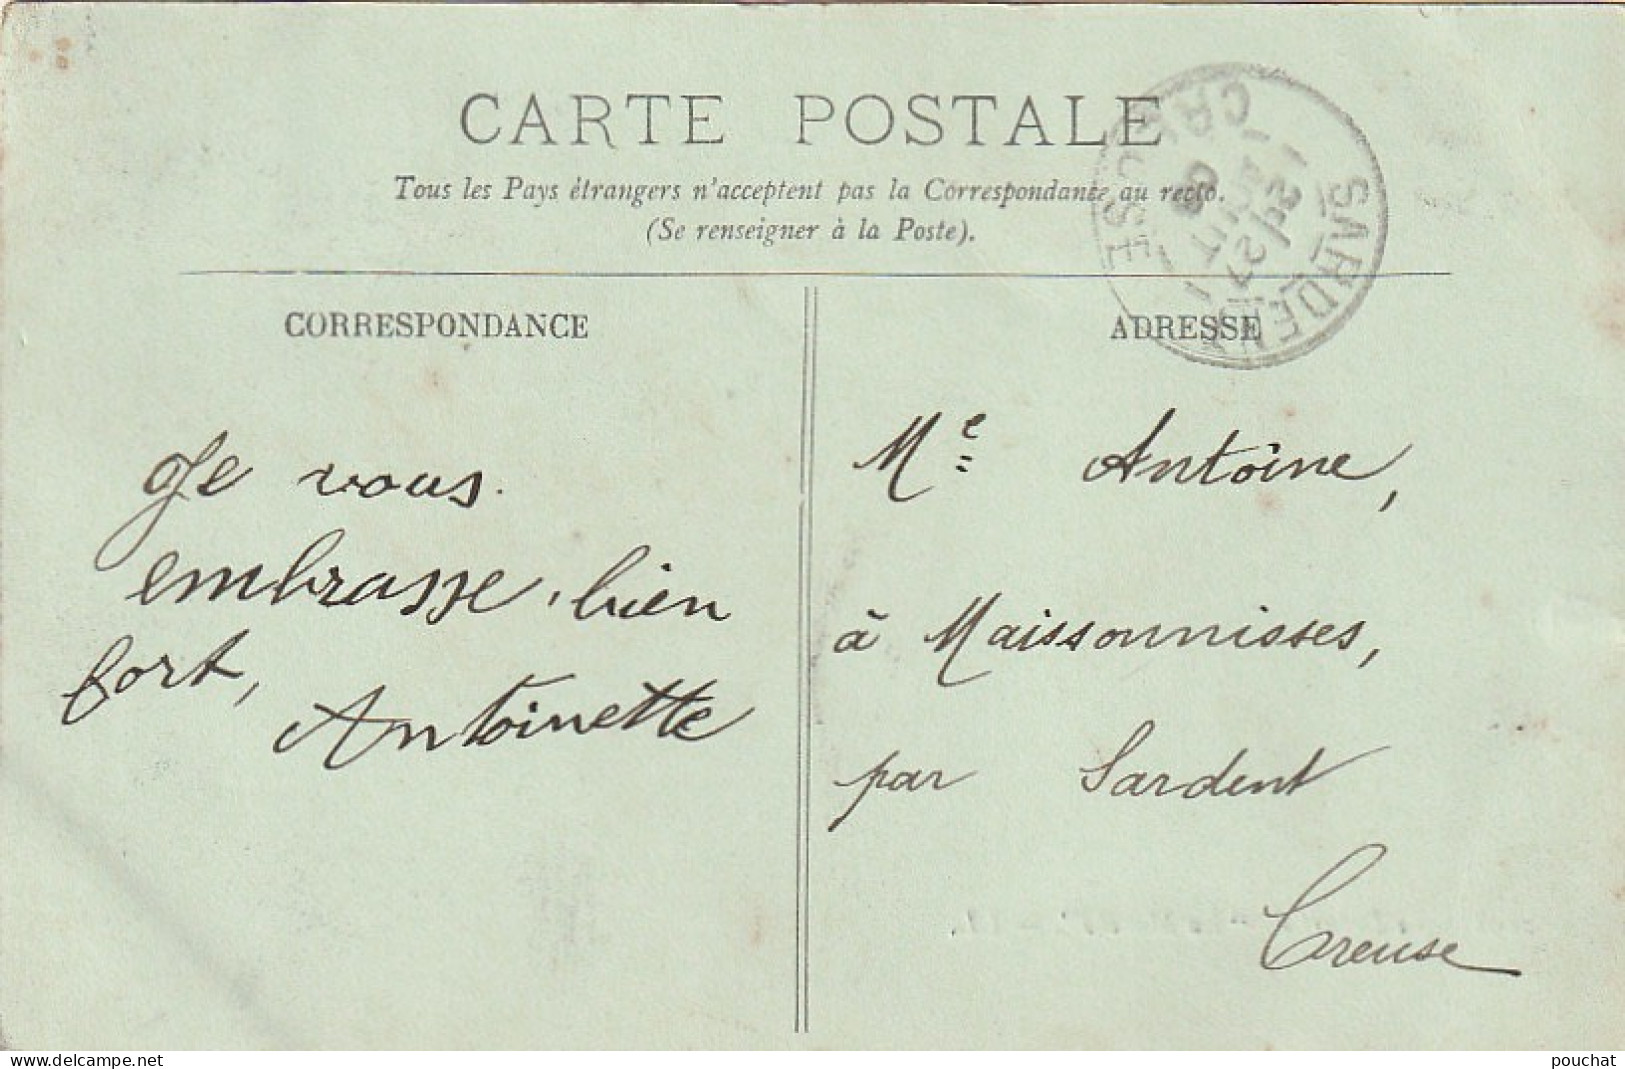 CARTE POSTALE
Tous les Pays étrangers n'acceptent pas la Correspondance au recto.
(Se renseigner à la Poste).
SARDENT
CREUSE
27
AOUT
08
CORRESPONDANCE
ADRESSE
Je vous
embrasse, bien
fort,
Antoinette
Me Antoine,
à Maissonnisses,
par Sardent
Creuse
www.delcampe.net
pouchat